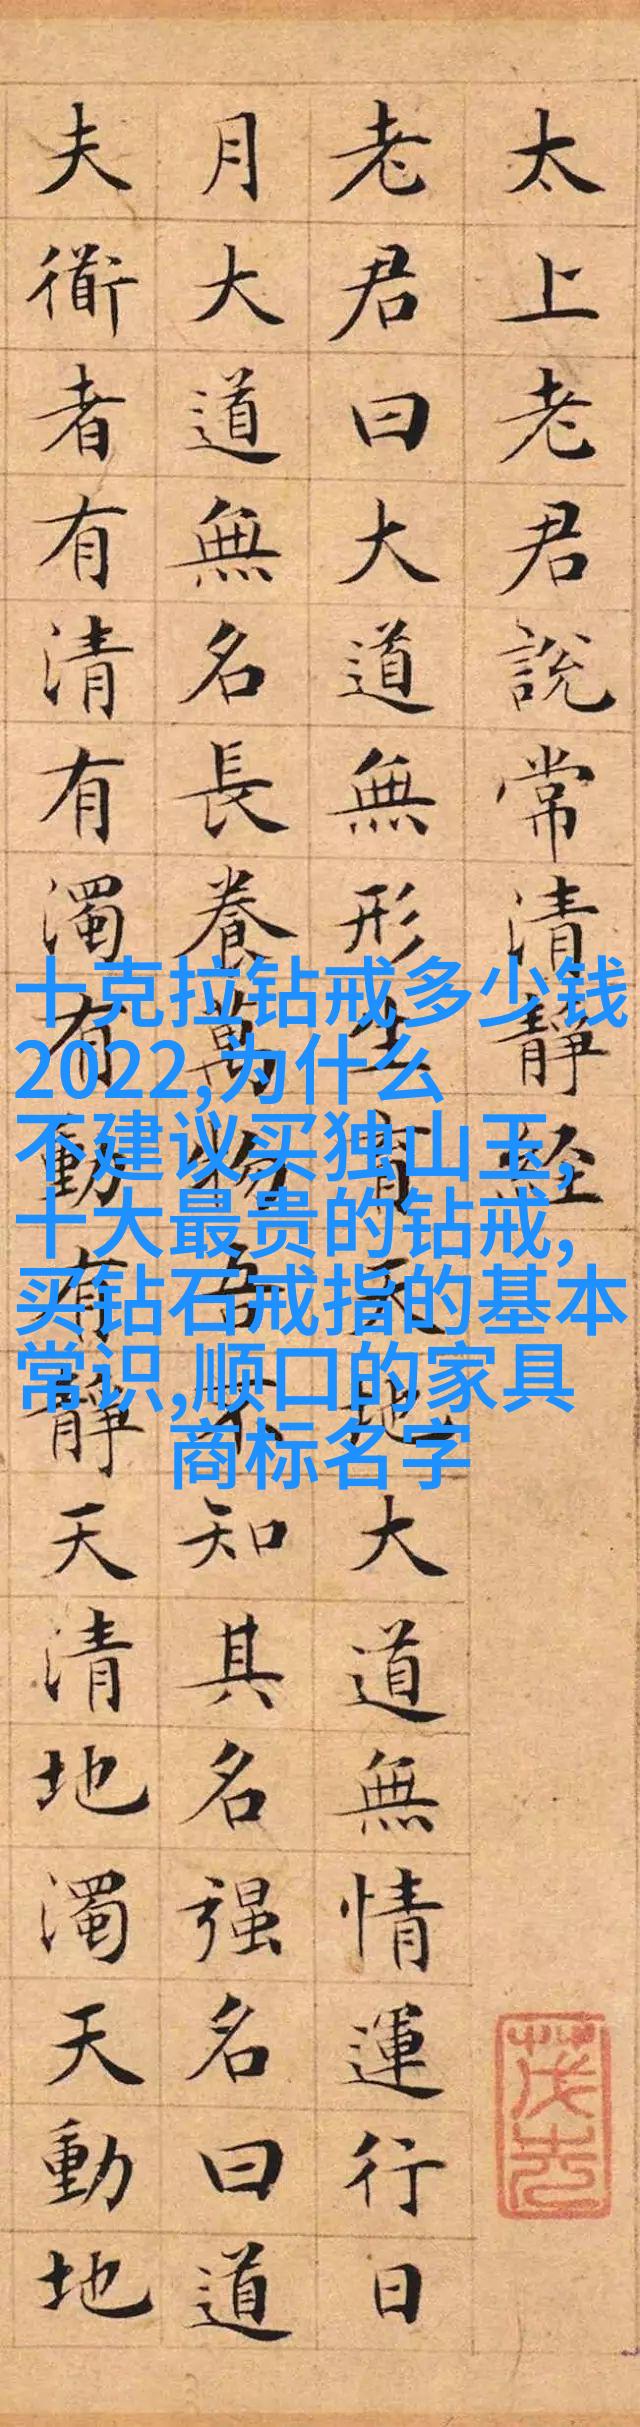 太上老君説常清靜經
老君曰大道無形生育天地大道無情運行日
月大道無名長養萬物吾不知其名强名曰道
夫衟者有清有濁有動有靜天清地濁天動地
茂先
十克拉钻戒多少钱
2022,为什么
不建议买独山玉,
十大最贵的钻戒,
买钻石戒指的基本
常识,顺口的家具
商标名字